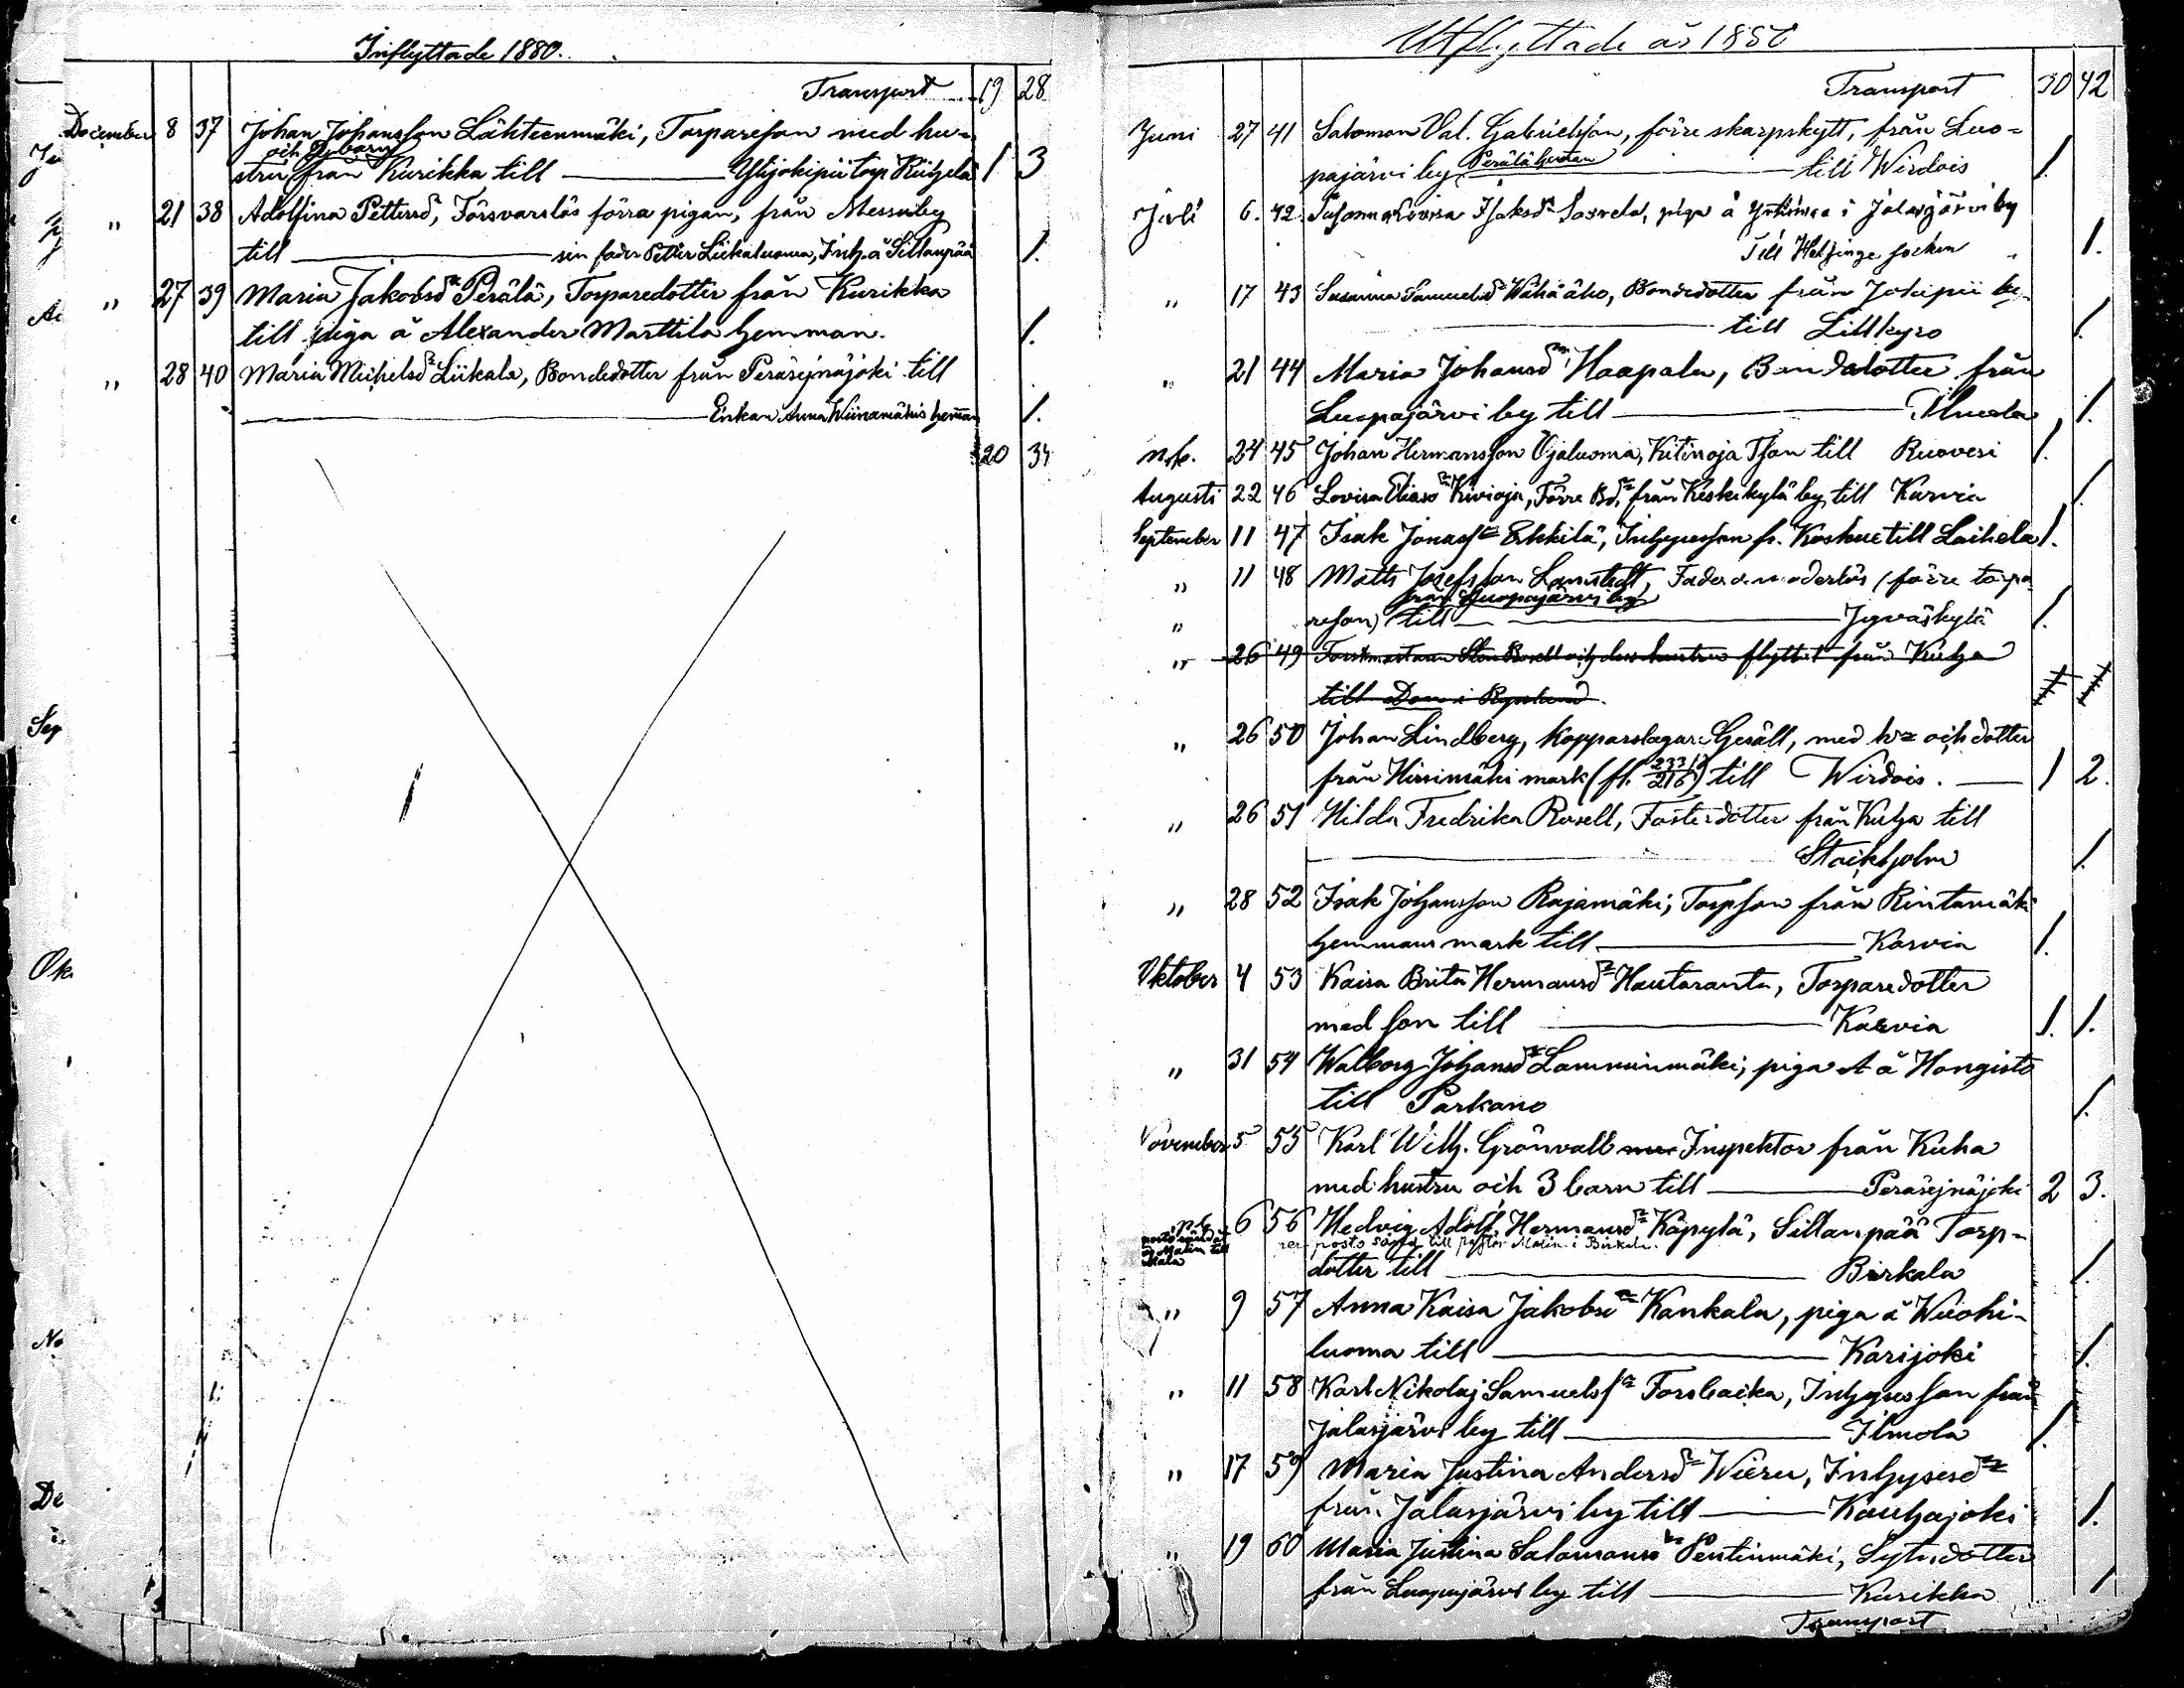 Inflyttade 1880.
Transport 19 28
December 8 37 Johan Johansson Lähteenmäki, Torpareson med hu-
och
stru från Kurikka till Ylijokipii torp 1 3
" 21 38 Adolfina Pettersd:r, Försvarslös förra pigan, från Messuby
till sin fader Petter Liikaluoma, Inh. å Sillanpää 1.
" 27 39 Maria Jakobsd:r Perälä, Torparedotter från Kurikka
till piga å Alexander Marttila hemman. 1.
" 28 40 Maria Michelsd:r Liikala, Bondedotter från Peräsejnäjoki till
Enkan Anna Wiinamäkis heman 1.
20 34
Sep
Ok
No
De
Utflyttade år 1880
Transport 30 42
Juni 27 41 Salomon Val. Gabrielsson, förre skarpskytt, från Luo-
pajärvi by Perälä till Wirdois 1.
Juli 6. 42. Susanna Lovisa Isaksd:r piga å i Jalasjärvi by
Till Helsinge socken 1.
" 17 43 Susanna Samuelsd:r Wähäaho, Bondedotter från Jokipii by
till Lillkyro 1.
" 21 44 Maria Johansd:r Haapala, Bondedotter från
Luopajärvi by till Ilmola 1.
24 45 Johan Hermansson Ojaluoma, Kitinoja Tson till Ruovesi 1.
Augusti 22 46 Lovisa Eliasd:r Kivioja, Förre Bd:r från Keskikylä by till Karvia 1.
September 11 47 Isak Jonass:n Erkkilä, Inhyseson fr. Koskue till Laihela 1.
" 11 48 Matts Josefsson Lannstedt, Fader o. moderlös (förre torpa
från Luopajärvi by
" reson) till Jyväskylä 1.
" 26 49 Forstmästaren Sten Rosell och dess hustru flyttat från Kuha
till Don i Ryssland.
" 26 50 Johan Lindberg, Kopparslagare Gesäll, med h:u och dotter
från Hirsimäki mark (fl. 233/216) till Wirdois. 1 2.
" 26 51 Hilda Fredrika Rosell, Fosterdotter från Kuha till
Stockholm 1.
" 28 52 Isak Johansson Rajamäki, Torpson från Rintamäki
hemmans mark till Karvia 1.
Oktober 4 53 Kaisa Brita Hermansd:r Hautaranta, Torparedotter
med son till Karvia 1. 1.
" 31 54 Walborg Johansd:r Lamminmäki, piga å Hongisto
till Parkano 1.
November 5 55 Karl Wilh. Grönvall Inspektor från Kuha
med hustru och 3 barn till Peräsejnäjoki 2 3.
6 56 Hedvig Adolf. Hermansd:r Käpylä, Sillanpää Torp-
posto till pastor Malin i Birkala.
dotter till Birkala 1.
" 9 57 Anna Kaisa Jakobsd:r Kankala, piga å Wuohi-
luoma till Karijoki 1.
" 11 58 Karl Nikolaj Samuelss:n Forsbacka, Inhyseson från
Jalasjärvi by till Ilmola 1.
" 17 59 Maria Justina Andersd:r Wieru, Inhysesd:r
från Jalasjärvi by till Kauhajoki 1.
" 19 60 Maria Justina Salomonsd:r Penttinmäki, Sytn.dotter
från Luopajärvi by till Kurikka 1
Transport